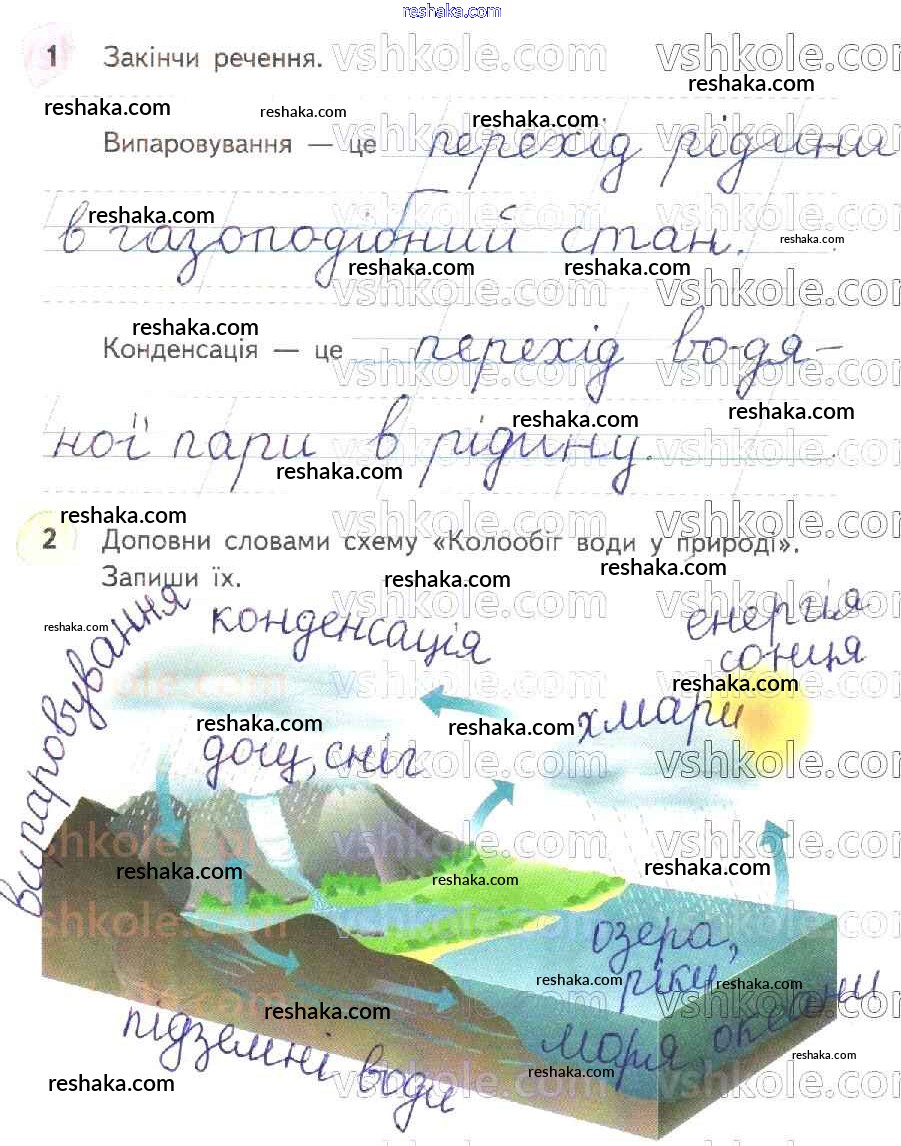 reshaka.com
1 Закінчи речення.
Випаровування — це перехід рідини
в газоподібний стан.
Конденсація — це перехід водя-
ної пари в рідину.
2 Доповни словами схему «Колообіг води у природі».
Запиши їх.
випаровування
конденсація
енергія
сонця
хмари
дощ, сніг
озера,
ріки
моря, океани
підземні води
vshkole.com